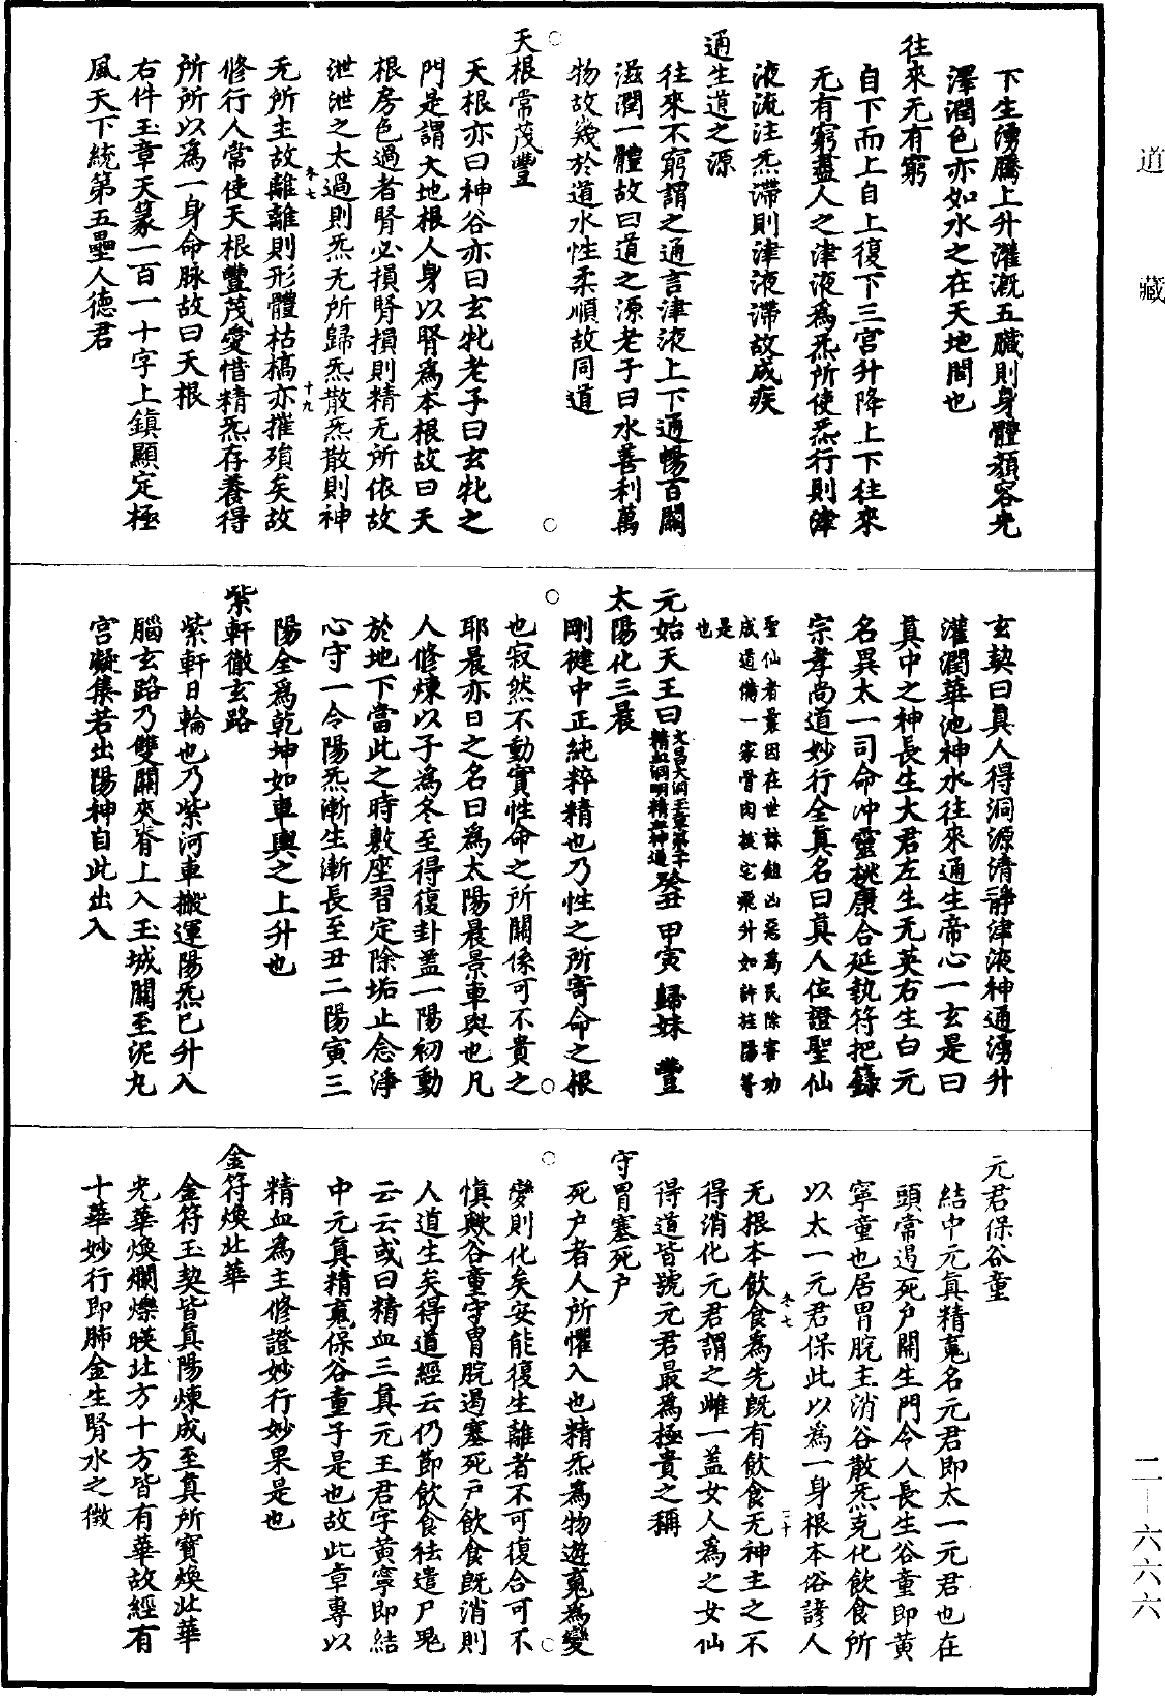 道藏
二—六六六
下生湧騰上升灌漑五臟則身體顏容光
澤潤色亦如水之在天地間也
往來无有窮
自下而上自上復下三宫升降上下往來
无有窮盡人之津液爲炁所使炁行則津
液流注炁滯則津液滯故成疾
通生道之源
往來不窮謂之通言津液上下通暢百關
滋潤一體故曰道之源老子曰水善利萬
物故幾於道水性柔順故同道
天根常茂豐
天根亦曰神谷亦曰玄牝老子曰玄牝之
門是謂大地根人身以腎爲本根故曰天
根房色過者腎必損腎損則精无所依故
泄泄之太過則炁无所歸炁散炁散則神
无所主故離離則形體枯槁亦摧殞矣故
冬七
十九
修行人常使天根豐茂愛惜精炁存養得
所所以為一身命脉故曰天根
右件玉章天篆一百一十字上鎮顯定極
風天下統第五壘人德君
玄契曰真人得洞源清靜津液神通湧升
灌潤華池神水往來通生帝心一玄是曰
真中之神長生大君左生无英右生白元
名異太一司命沖靈桃康合延執符把籙
宗孝尚道妙行全真名曰真人位證聖仙
聖仙者衆因在世誅鉏凶惡爲民除害功
成道備一家骨肉拔宅飛升如許旌陽等
是也
元始天王曰文昌大洞玉章第二十精血洞明精血神通癸丑 甲寅 歸妹 豐
太陽化三晨
剛健中正純粹精也乃性之所寄命之根
也寂然不動實性命之所關係可不貴之
耶晨亦日之名曰爲太陽晨景車輿也凡
人修煉以子為冬至得復卦蓋一陽初動
於地下當此之時敷座習定除垢止念淨
心守一令陽炁漸生漸長至丑二陽寅三
陽全爲乾坤如車輿之上升也
紫軒徹玄路
紫軒日輪也乃紫河車搬運陽炁已升入
腦玄路乃雙關夾脊上入玉城關至泥丸
宫凝集若出陽神自此出入
元君保谷童
結中元真精䰟名元君即太一元君也在
頭常遏死户開生門令人長生谷童即黄
寧童也居胃脘主消谷散炁克化飲食所
以太一元君保此以為一身根本俗諺人
无根本飲食為先旣有飲食无神主之不
冬七
二十
得消化元君謂之雌一蓋女人為之女仙
得道皆號元君最爲極貴之稱
守胃塞死户
死户者人所懼入也精炁為物遊䰟為變
變則化矣安能復生離者不可復合可不
愼歟谷童守胃脘遏塞死戸飲食旣消則
人道生矣得道經云仍節飲食袪遣尸鬼
云云或曰精血三真元王君字黄寧即結
中元真精䰟保谷童子是也故此章專以
精血為主修證妙行妙果是也
金符煥北華
金符玉契皆真陽煉成至真所寳煥北華
光華煥爛爍暎北方十方皆有華故經有
十華妙行即肺金生腎水之徵